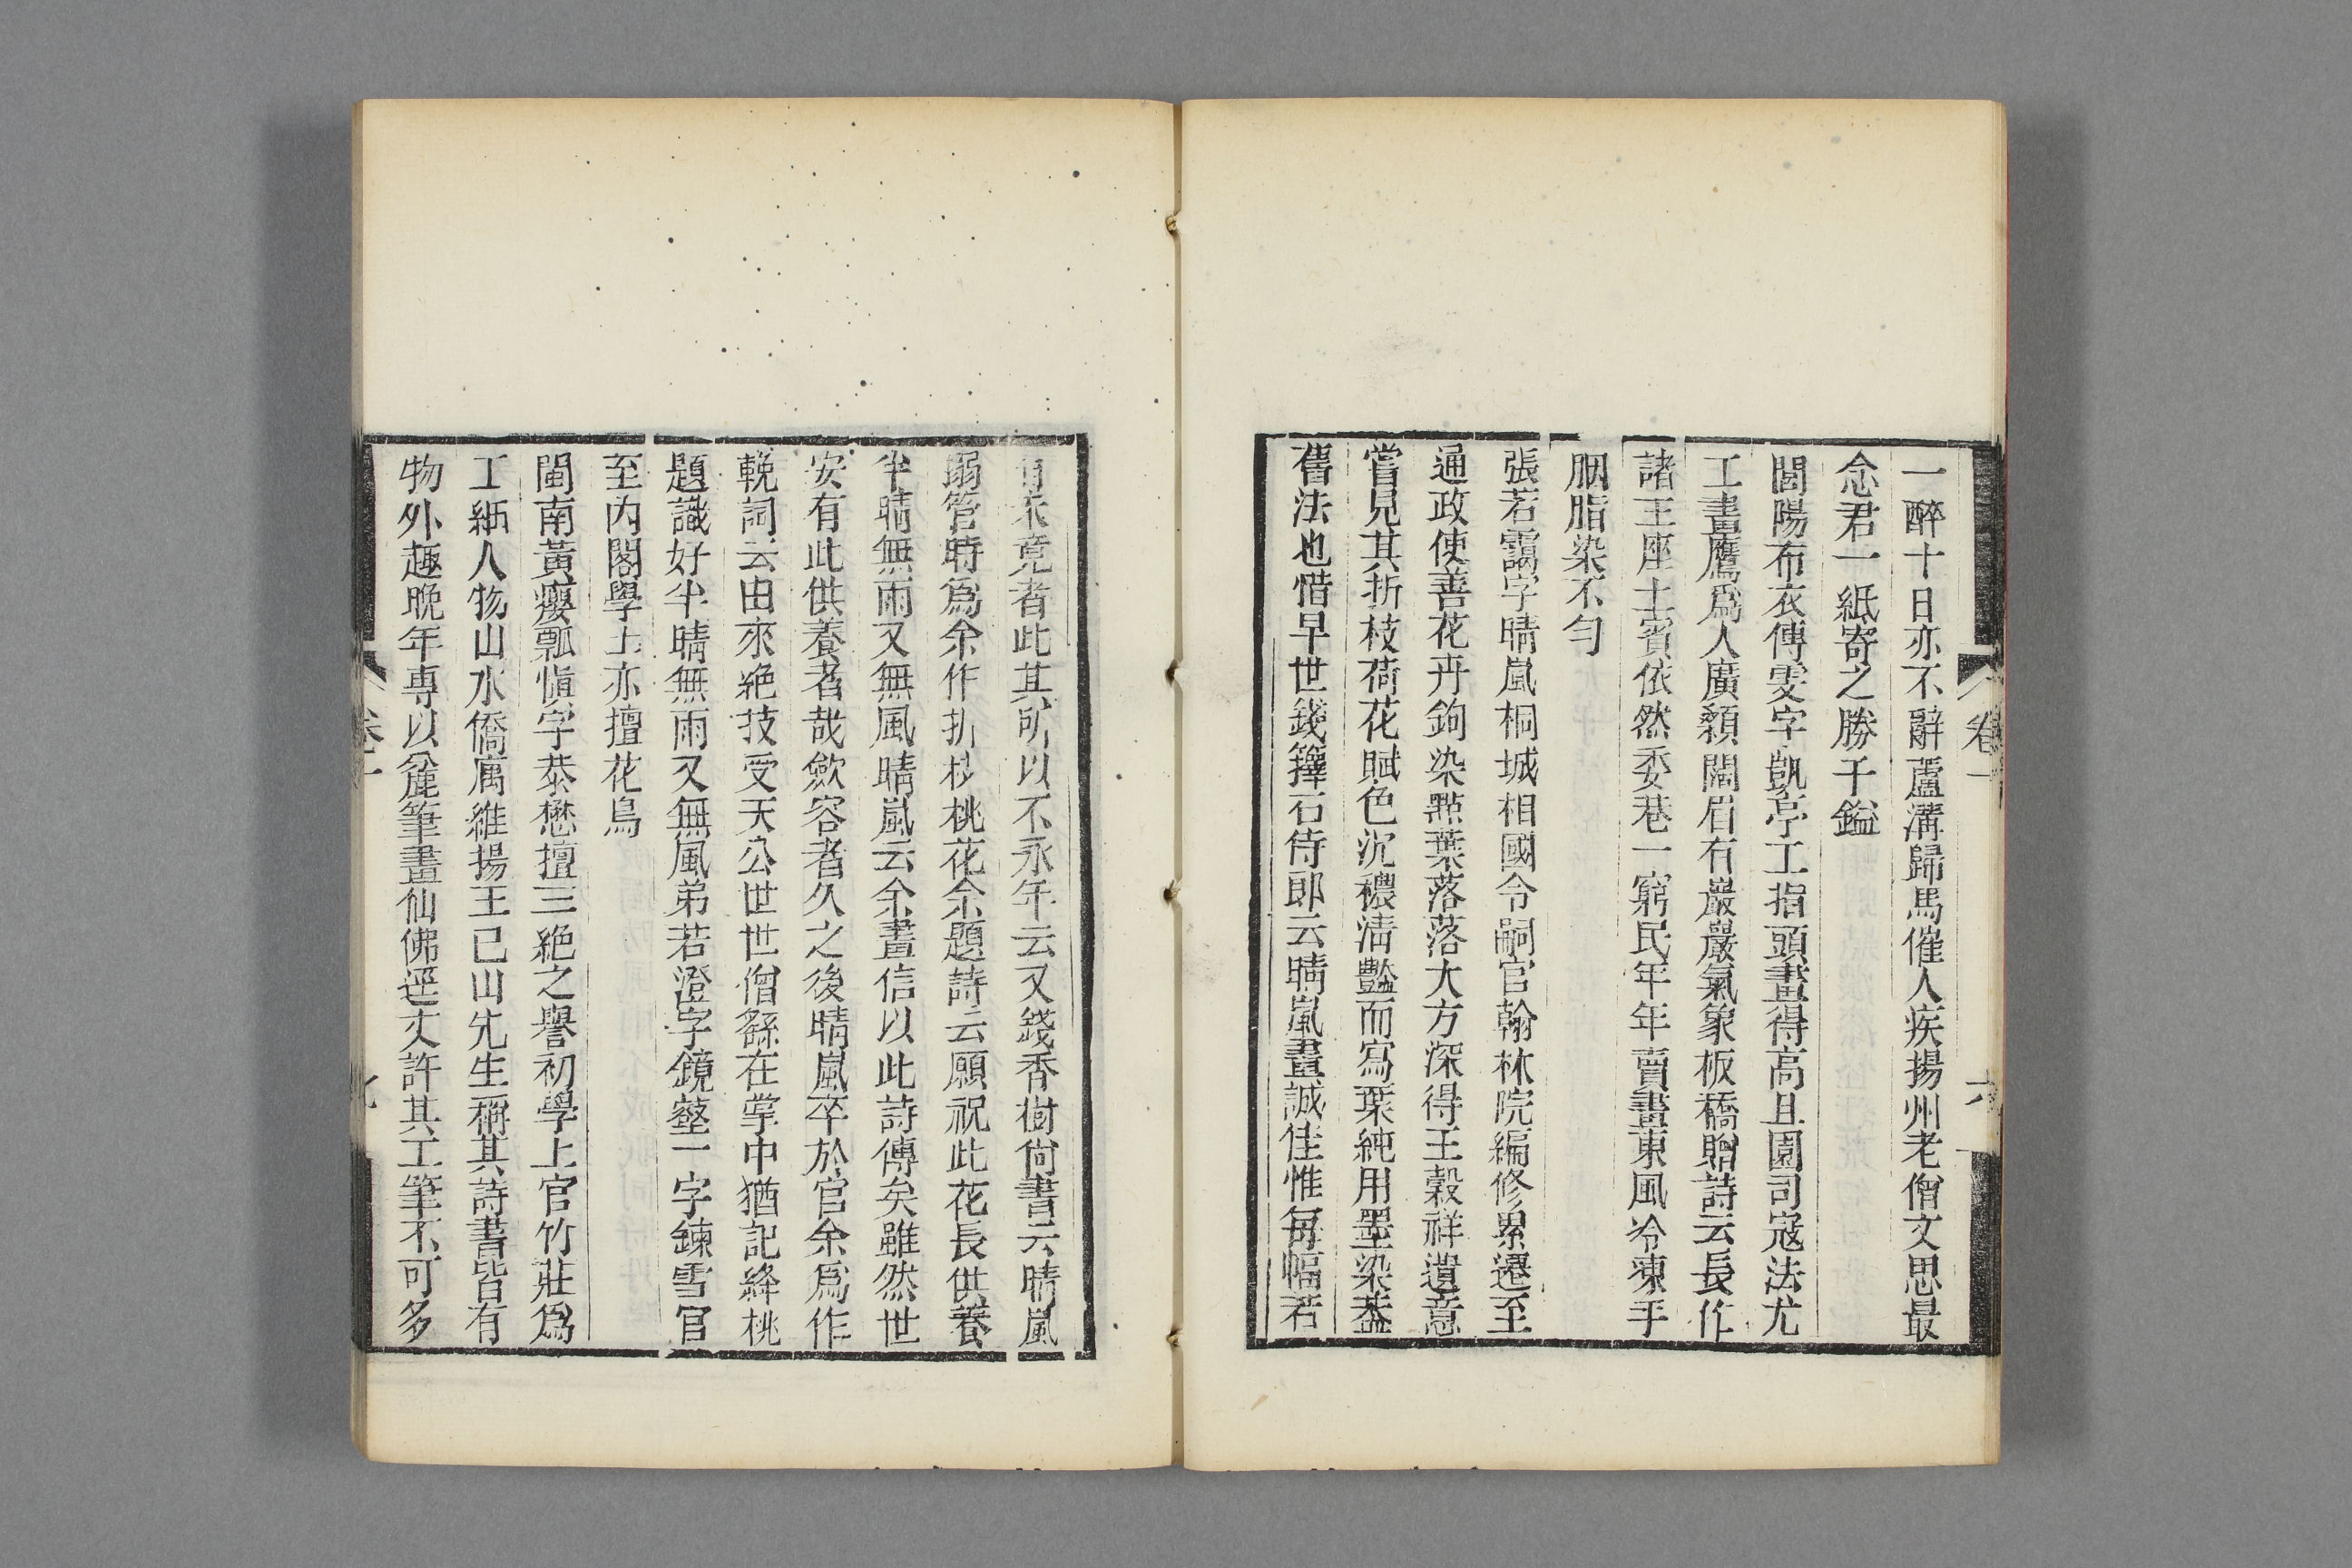 一醉十日亦不辭蘆溝歸馬催人疾揚州老僧文思最
念君一紙寄之勝千鎰
閭陽布衣傅雯字凱亭工指頭畫得高且園司寇法尤
工畫鷹爲人廣顙闊眉有巖巖氣象板橋贈詩云長作
諸王座上賓依然委巷一窮民年年賣畫東風冷凍手
胭脂染不勻
張若靄字晴嵐桐城相國令嗣官翰林院編修累遷至
通政使善花卉鉤染點葉落落大方深得王穀祥遺意
嘗見其折枝荷花賦色沉穠淸豔而寫葉純用墨染葢
舊法也惜早世錢籜石侍郞云晴嵐畫誠佳惟每幅若
有未竟者此其所以不永年云又錢香樹尙書云晴嵐
搦管時爲余作折枝桃花余題詩云願祝此花長供養
半晴無雨又無風晴嵐云余畫信以此詩傳矣雖然世
安有此供養者哉歛容者久之後晴嵐卒於官余爲作
輓詞云由來絶技受天公世世僧繇在掌中猶記絳桃
題識好半晴無雨又無風弟若澄字鏡壑一字鍊雪官
至内閣學士亦擅花鳥
閩南黃癭瓢愼字恭懋擅三絶之譽初學上官竹莊爲
工緬人物山水僑寓維揚王己山先生稱其詩書皆有
物外趣晚年專以麄筆畫仙佛逕丈許其工筆不可多
卷一
六